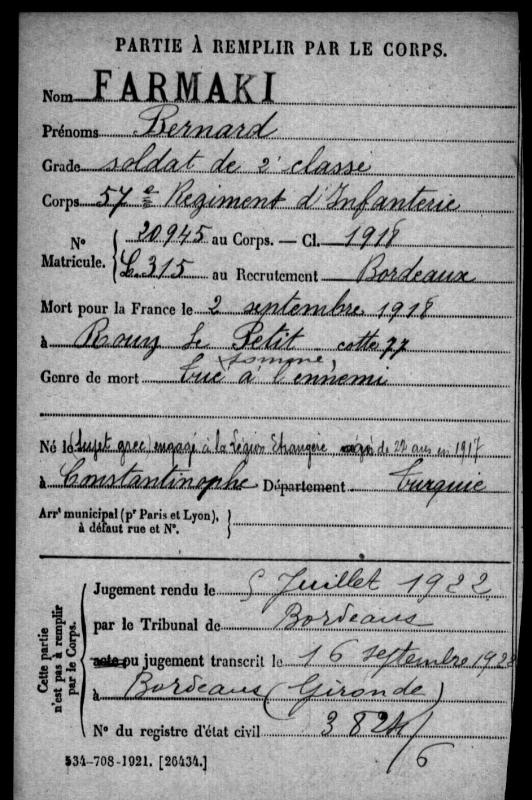 PARTIE À REMPLIR PAR LE CORPS.
Nom FARMAKI
Prénoms Bernard
Grade soldat de 2e classe
Corps 57e Régiment d'Infanterie
N° Matricule. { 20945 au Corps. — Cl. 1918
L.315 au Recrutement Bordeaux
Mort pour la France le 2 septembre 1918
à Rouy le Petit cotte 77
Somme,
Genre de mort tué à l'ennemi
Né le (sujet grec) engagé à la Légion Etrangère âgé de 22 ans en 1917
à Constantinople Département Turquie
Arrt municipal (pr Paris et Lyon), }
à défaut rue et N°.
Cette partie n'est pas à remplir par le Corps.
Jugement rendu le 5 Juillet 1922
par le Tribunal de Bordeaux
acte ou jugement transcrit le 16 septembre 1922
à Bordeaux (Gironde)
N° du registre d'état civil 382
6
534-708-1921. [26434.]